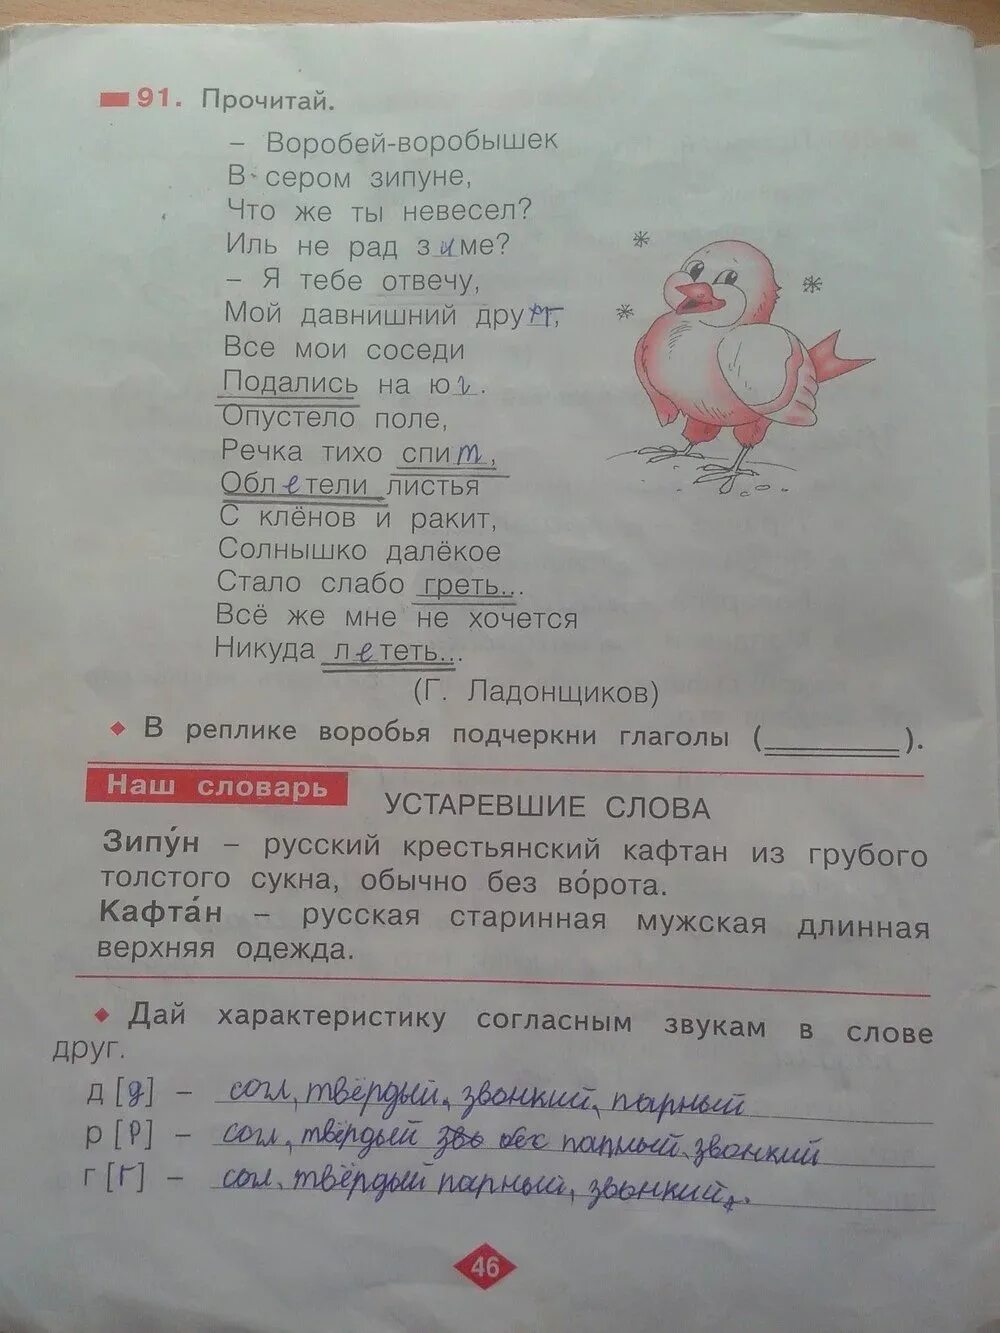 91. Прочитай.
– Воробей-воробышек
В сером зипуне,
Что же ты невесел?
Иль не рад зиме?
– Я тебе отвечу,
Мой давнишний друг,
Все мои соседи
Подались на юг.
Опустело поле,
Речка тихо спит,
Облетели листья
С клёнов и ракит,
Солнышко далёкое
Стало слабо греть...
Всё же мне не хочется
Никуда лететь...
(Г. Ладонщиков)
◆ В реплике воробья подчеркни глаголы (________).
Наш словарь
УСТАРЕВШИЕ СЛОВА
Зипу́н – русский крестьянский кафтан из грубого
толстого сукна, обычно без во́рота.
Кафта́н – русская старинная мужская длинная
верхняя одежда.
◆ Дай характеристику согласным звукам в слове
друг.
д [д] – согл, твёрдый, звонкий, парный
р [р] – согл, твёрдый парный, звонкий
г [г] – согл. твёрдый парный, звонкий.
46